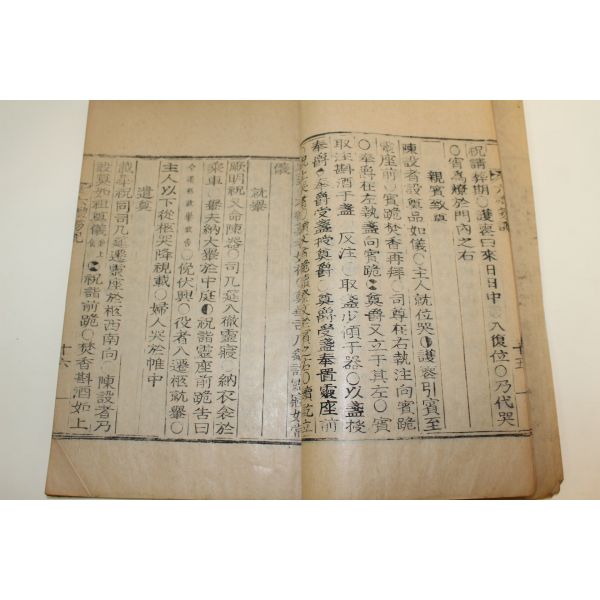 祝請葬期○護喪曰來日日中 入復位○乃代哭
○宵爲燎於門內之右
親賓致奠
陳設者設奠品如儀○主人就位哭○護喪引賓至
靈座前○賓跪焚香再拜○司尊在右執注向賓跪
○奉爵在左執盞向賓跪○奠爵又立于其左○賓
取注斟酒于盞 反注○取盞少傾于器○以盞授
奉爵○奉爵受盞授奠爵○奠爵受盞奉置靈座前
儀
就轝
厥明祝又命陳器○司几筵入徹靈寢 納衣衾於
乘車 轝夫納大轝於中庭○祝詣靈座前跪告曰
今遷柩就轝敢告○俛伏興○役者入遷柩就轝○
主人以下從柩哭降視載○婦人哭於帷中
遣奠
載畢祝同司几筵遷靈座於柩西南向○陳設者乃
設奠如祖奠儀 ○祝詣前跪○焚香斟酒如上